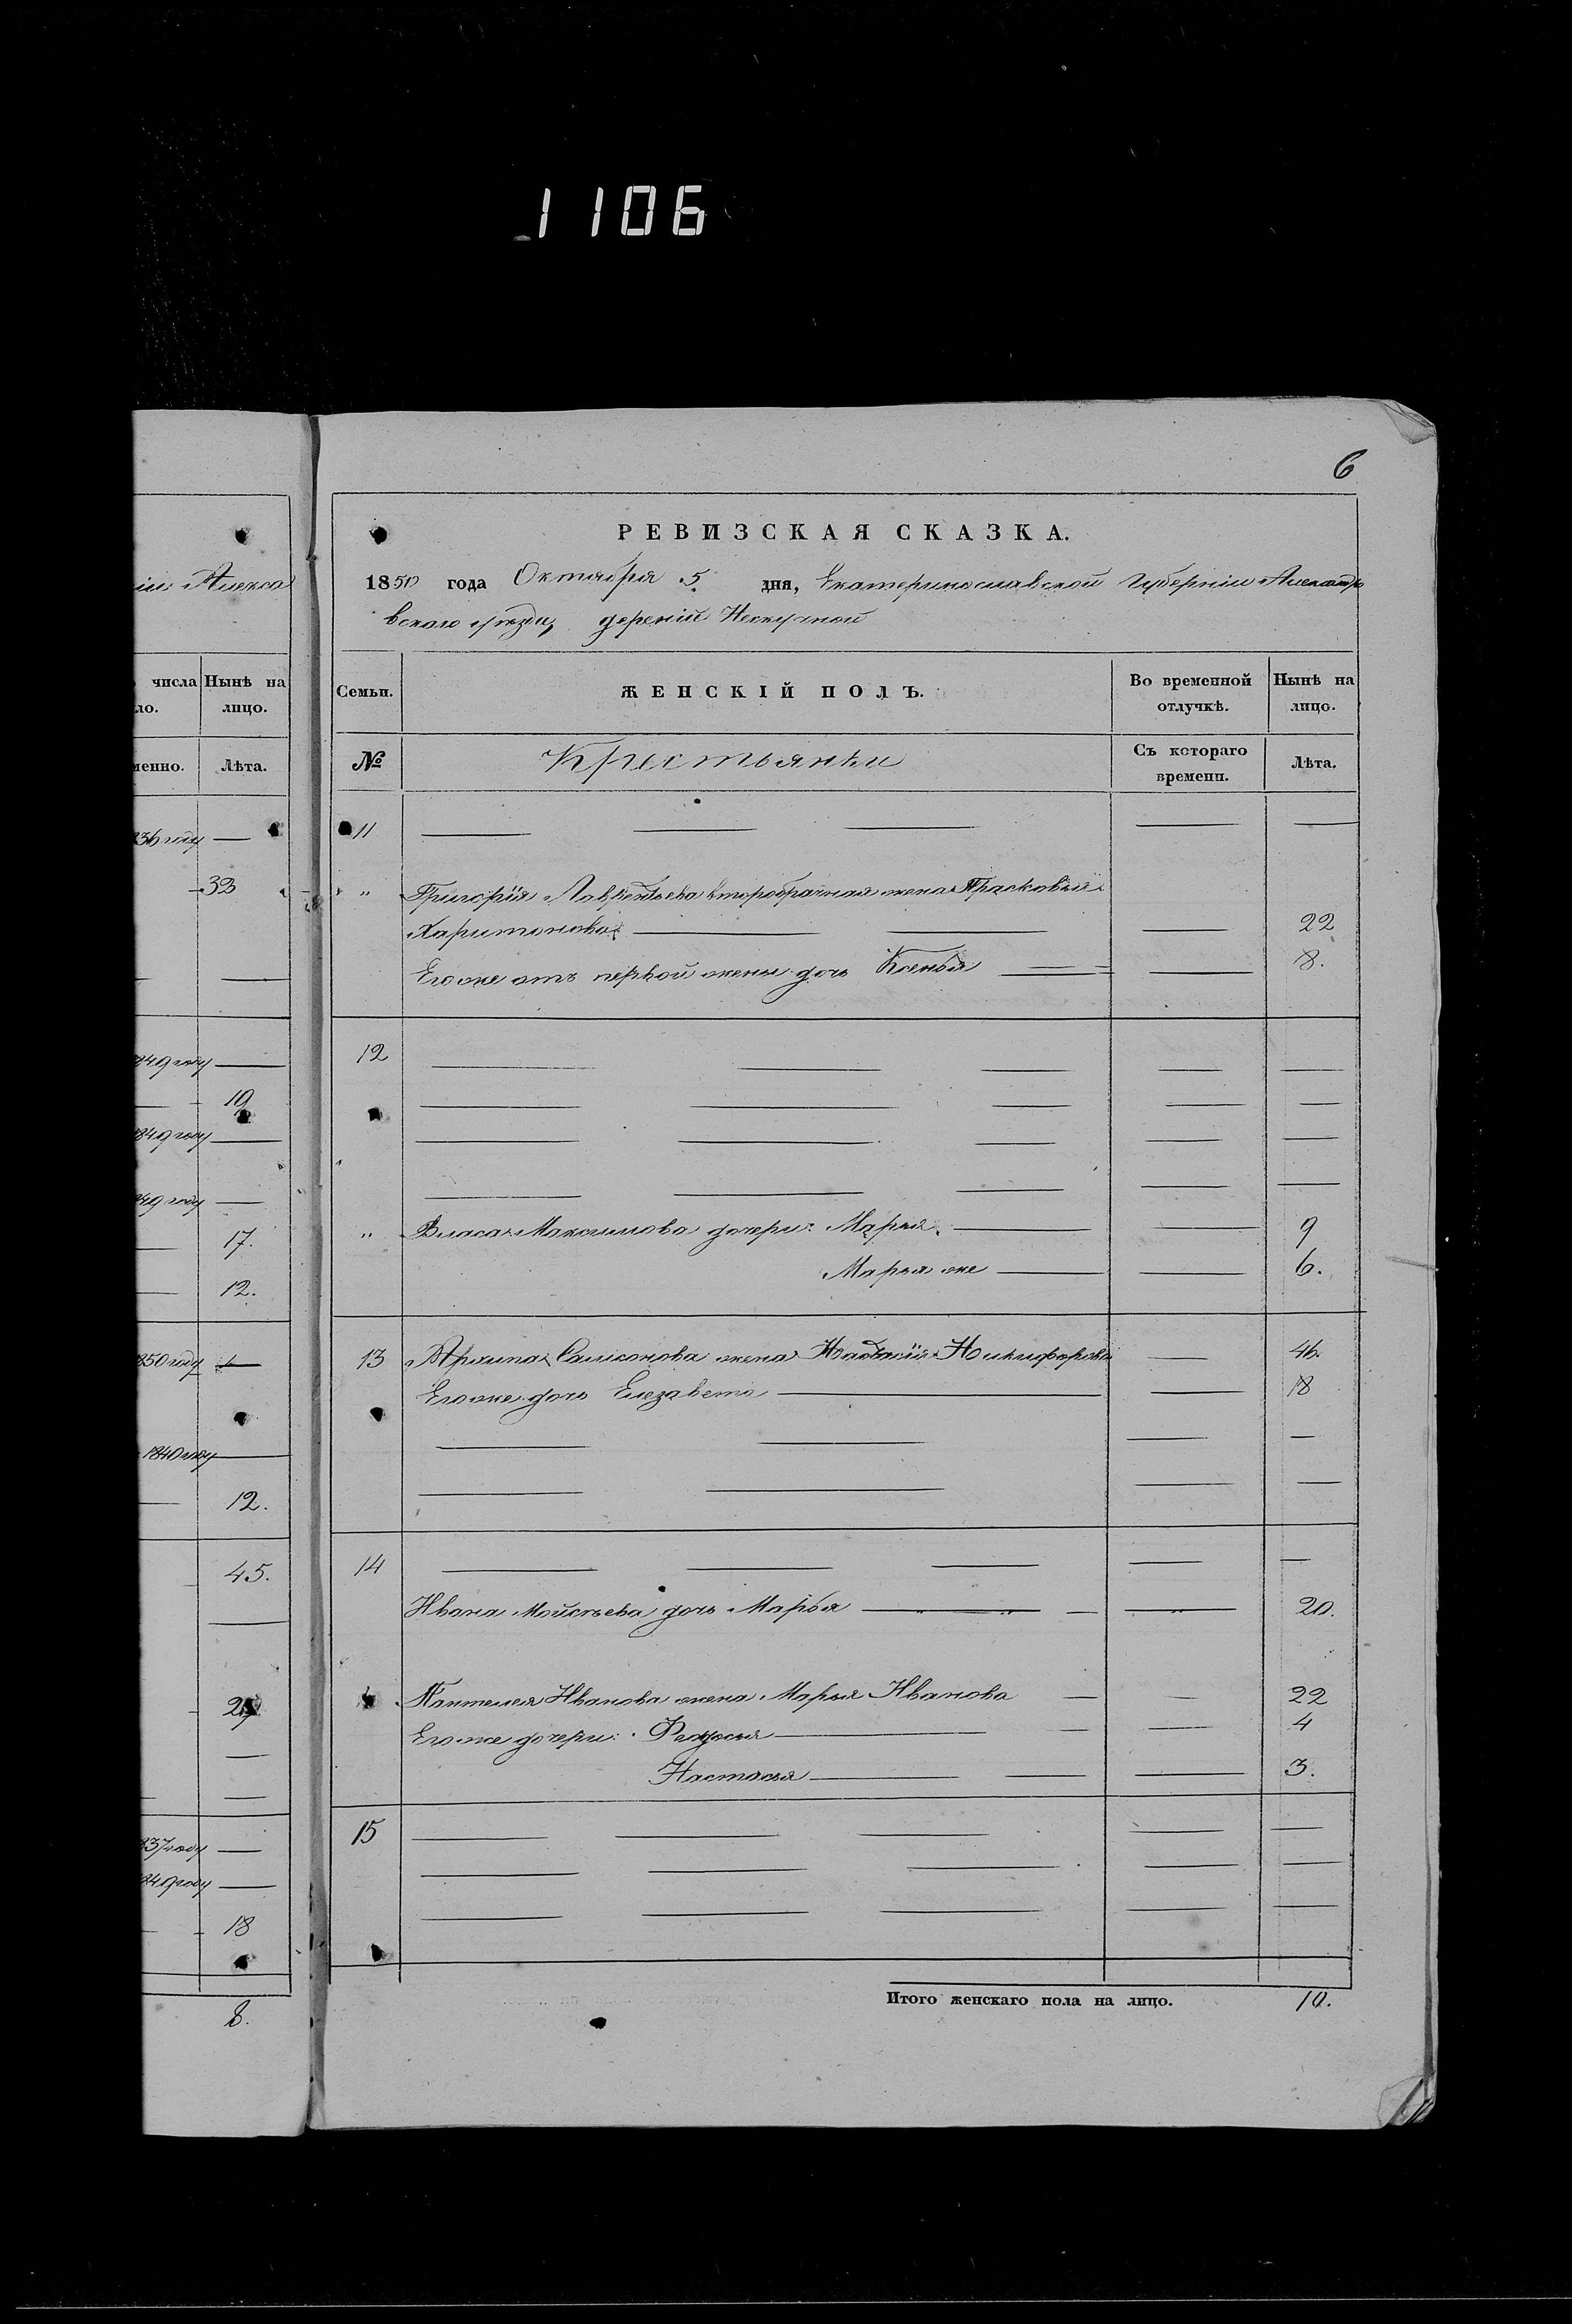 1106
6
РЕВИЗСКАЯ СКАЗКА.
1850 года Октября 5. дня, Екатеринославской Губерніи Александро
вскаго уезда, деревни Нескучной
Семьи.
ЖЕНСКІЙ ПОЛЪ.
Во временной отлучкѣ.
Нынѣ на лицо.
№
Крестьянки
Съ котораго времени.
Лѣта.
11
" Григорія Лаврентьева второбрачная жена Прасковья
Харитонова 22
Его же отъ первой жены дочь Ксенья 8.
12
" Власа Максимова дочери: Марья 9
Марья же 6.
13 Архипа Самсонова жена Никифорова 46.
Его же дочь Елезавета 18
14
Ивана Мойсѣева дочь Марья 20.
Пантелея Иванова жена Марья Иванова 22
Его же дочери: Федосья 4
Настасья 3.
15
Итого женскаго пола на лицо. 10.
іи Алекса
числа
ло.
Нынѣ на
лицо.
менно.
Лѣта.
836 году
33
849 году
19
849 году
849 году
17.
12.
850 году
1840 году
12.
45.
837 году
849 году
18
8.